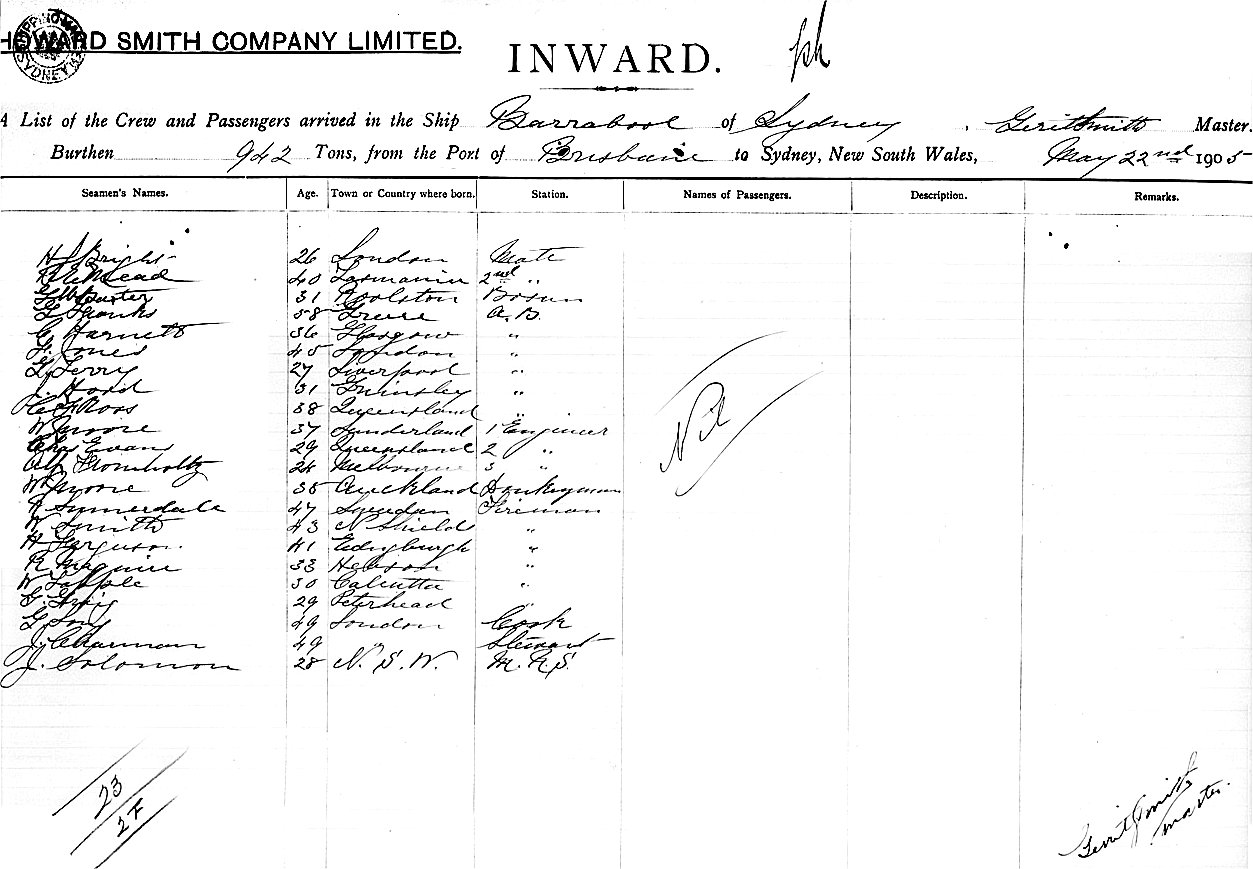 HOWARD SMITH COMPANY LIMITED.
INWARD.
A List of the Crew and Passengers arrived in the Ship Barrabool of Sydney , Gerit Smith Master.
Burthen 942 Tons, from the Port of Brisbane to Sydney, New South Wales, May 22nd 1905
Seamen's Names. Age. Town or Country where born. Station. Names of Passengers. Description. Remarks.
H Bright 26 London Mate
Mead 40 Tasmania 2nd "
Baxter 31 Bosun
58 A.B.
C Harnett 36 Glasgow "
Jones 45 London "
Terry 27 Liverpool "
J. Hood 31 Grimsley "
Ross 38 Queensland "
W Moore 37 Sunderland 1 Engineer
Chas Evans 29 Queensland 2 "
Alf Fromholtz 24 Melbourne 3 "
W Moore 35 Auckland Donkeyman
47 Sweden Fireman
W Smith 43 N Shields "
H Ferguson. 41 Edinburgh "
R Maguire 33 "
W 30 Calcutta "
G. Greig 29 Peterhead "
G 49 London Cook
J. Charman 49 " Steward
J. Solomon 28 N.S.W. M.R.S.
Nil
23
2F
Gerrit Smith
master.